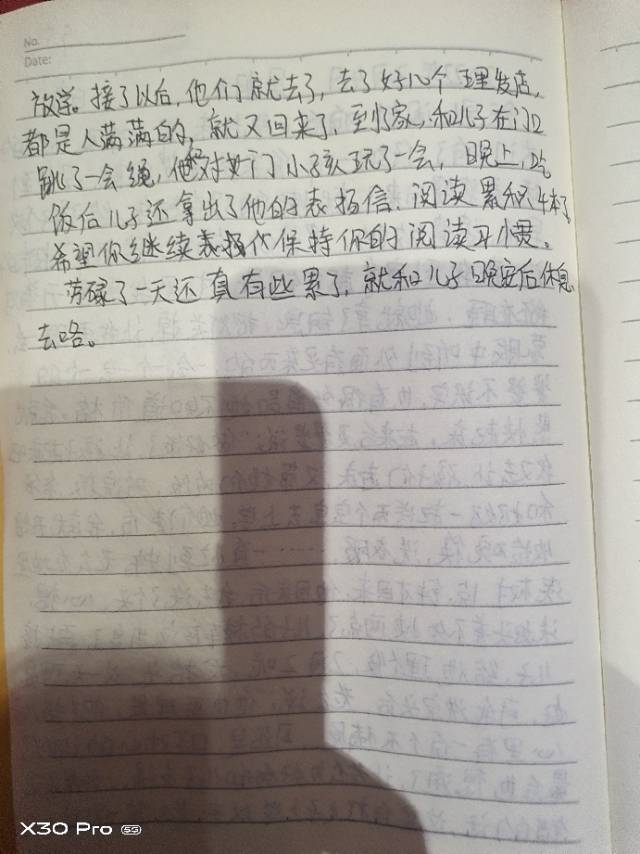 No.
Date:
放学。接了以后,他们就去了,去了好几个理发店,
都是人满满的,就又回来了,到了家,和儿子在门口
跳了一会绳,他对门小孩玩了一会,晚上,吃
饭后儿子还拿出了他的表扬信、阅读累积4本了
希望你继续表扬保持你的阅读习惯。
劳碌了一天还真有些累了,就和儿子晚安后休息
去咯。
X30 Pro 5G